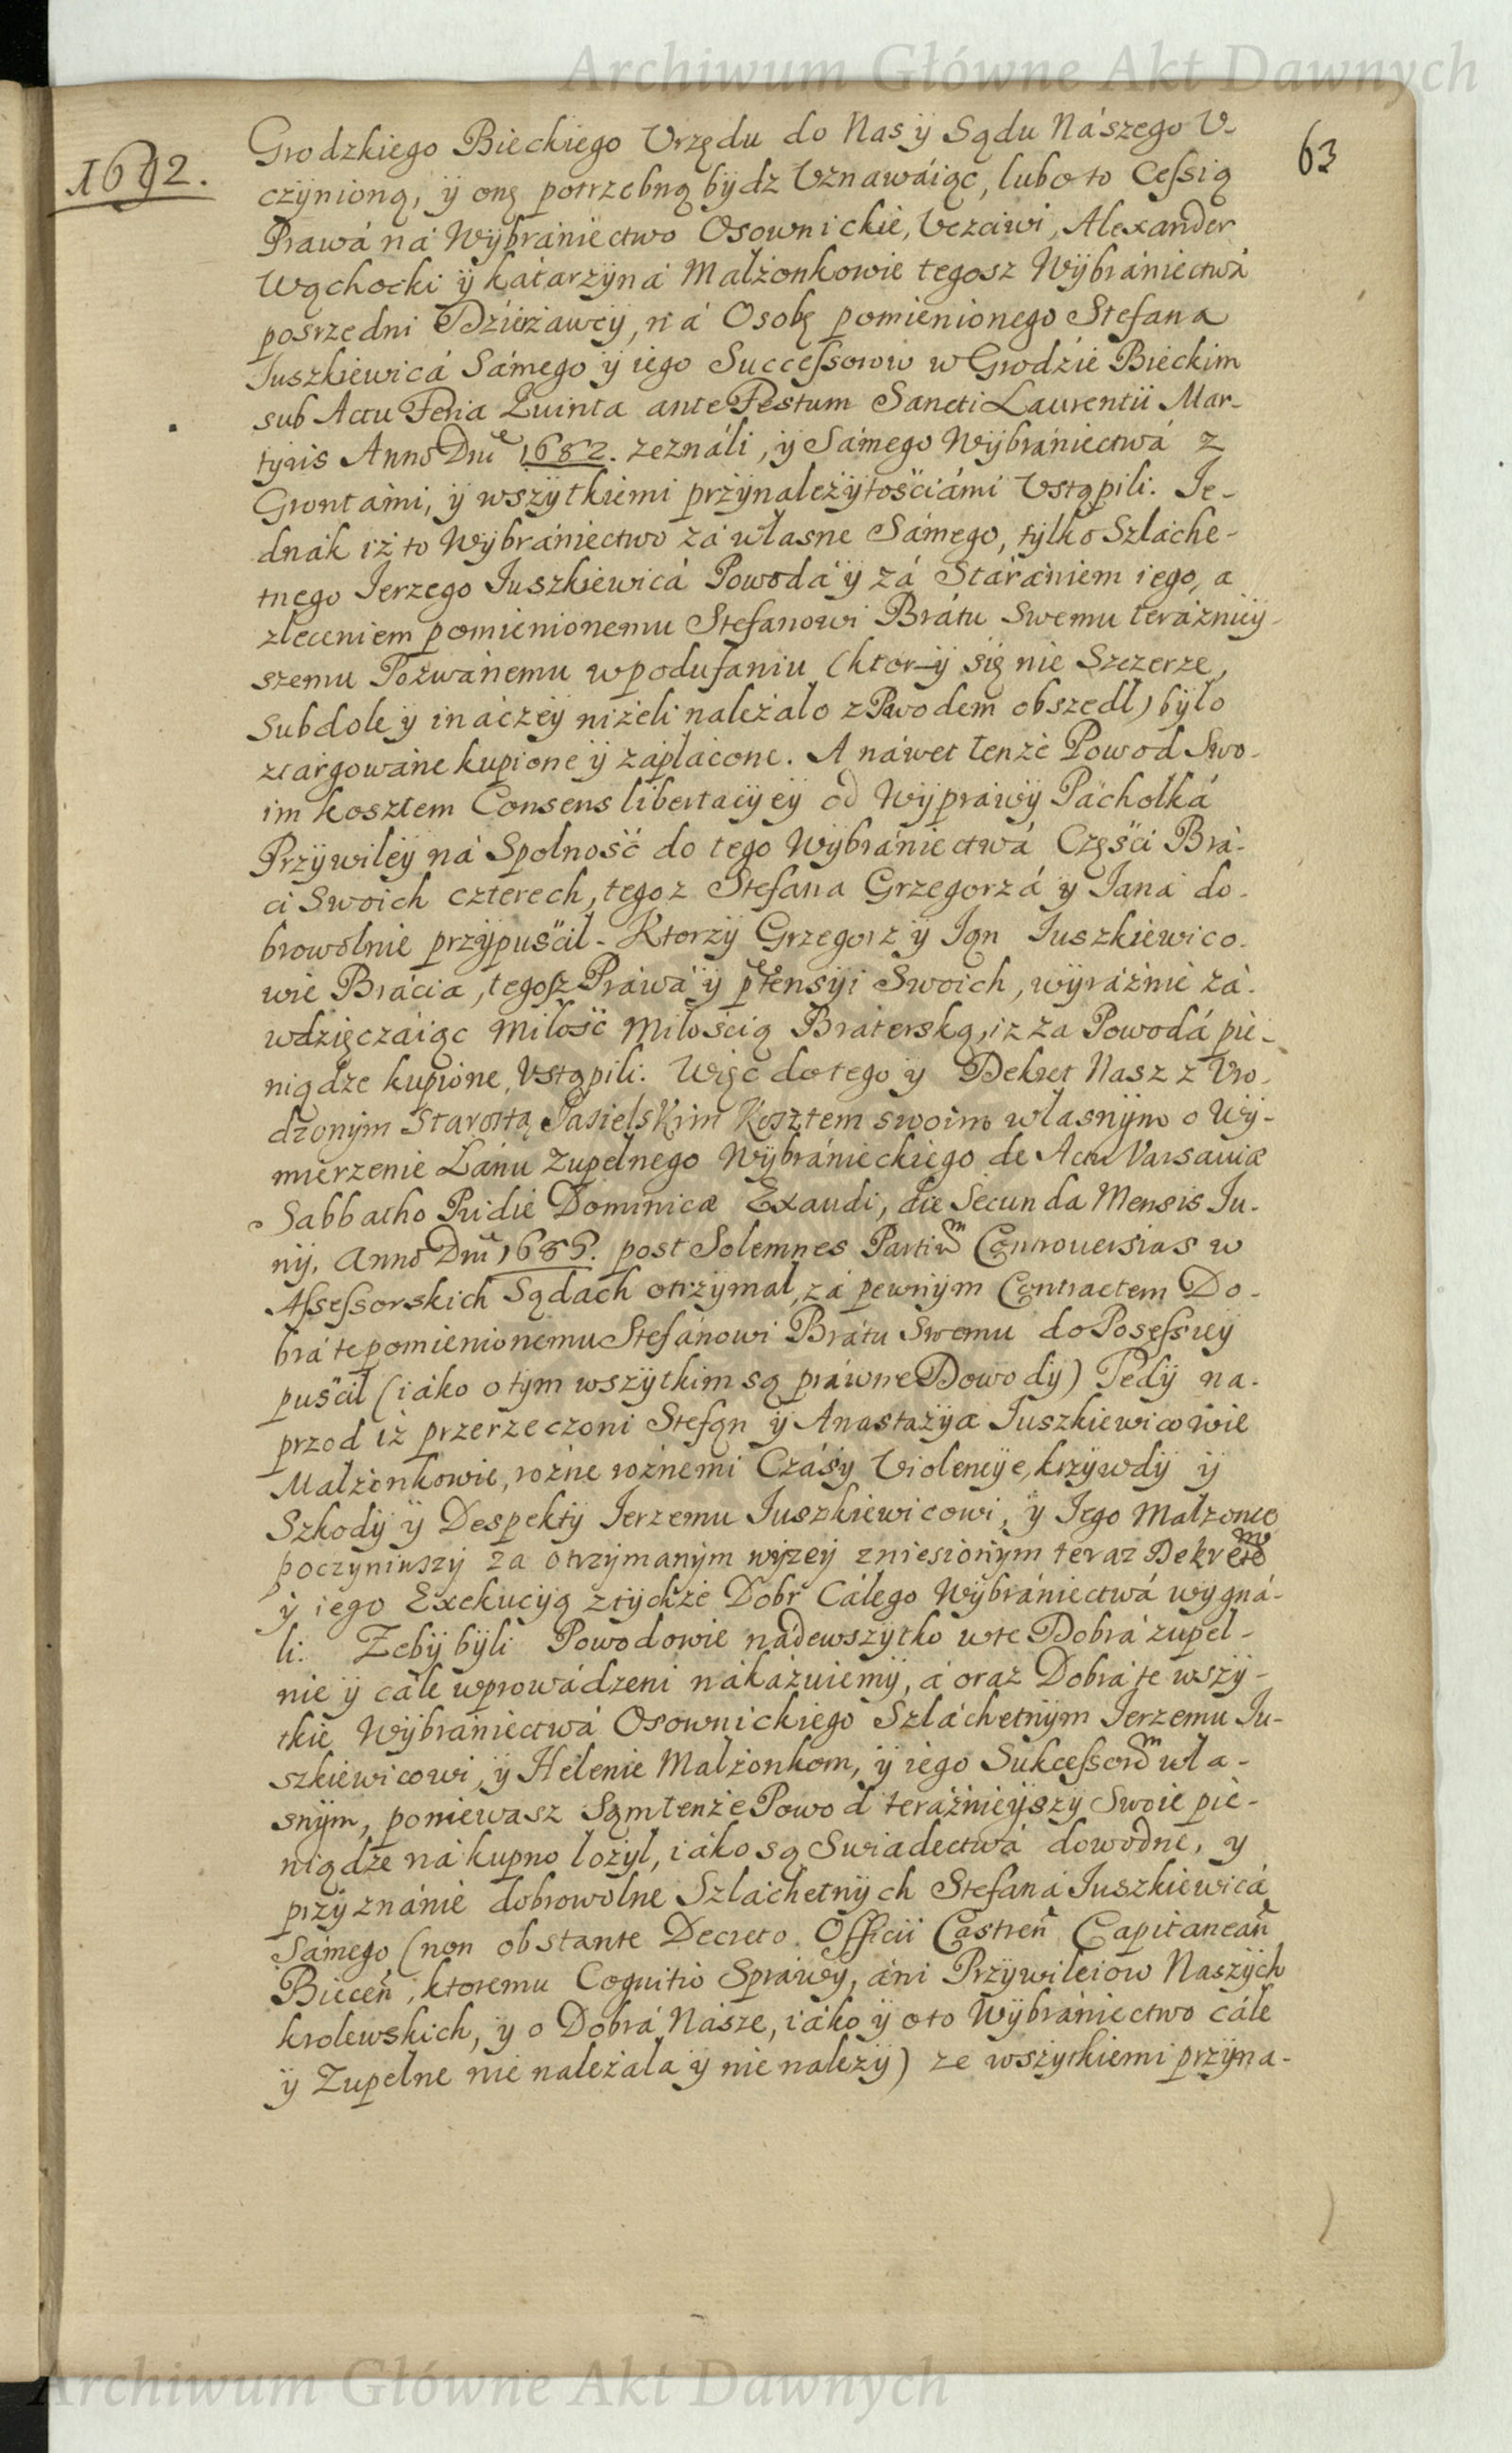 Archiwum Główne Akt Dawnych
1692.
63
Grodzkiego Bieckiego Vrzędu do Nas ÿ Sądu Nászego V-
czÿnioną, ÿ onę potrzebną bÿdz Vznawáiąc, lubo to Cessią
Prawá ná Wÿbrániectwo Osownickie, Vczciwi, Alexander
Wąchocki ÿ Kátarzÿná Małżonkowie tegosz Wÿbrániectwá
posrzedni Dzierżawcÿ, ná Osobę pomienionego Stefana
Juszkiewicá Sámego ÿ iego Successorow w Grodzie Bieckim
sub Actu Feria Quinta ante Festum Sancti Laurentii Mar-
tyris Anno Dni 1682. zeználi, ÿ Sámego Wÿbrániectwá z
Grontámi, ÿ wszÿtkiemi przÿnależÿtościámi Vstąpili. Je-
dnák iż to Wÿbrániectwo zá własne Sámego, tÿlko Szlache-
tnego Jerzego Juszkiewicá Powodá ÿ zá Stárániem iego, a
zleceniem pomienionemu Stefanowi Brátu Swemu teráznieÿ-
szemu Pozwánemu w podufaniu (ktorÿ się nie Szczerze,
Subdole ÿ ináczeÿ niżeli należało z Powodem obszedł) bÿło
ztargowáne kupione ÿ zápłácone. A náwet tenże Powod Swo-
im kosztem Consens libertacÿeÿ od Wÿpráwÿ Páchołká
Przÿwileÿ ná Spolność do tego Wÿbrániectwá Części Brá-
ci Swoich czterech, tegoz Stefana Grzegorzá ÿ Janá do-
browolnie przÿpuścił. Ktorzÿ Grzegorz ÿ Jan Juszkiewico-
wie Brácia, tegosz Práwá ÿ ptensÿi Swoich, wÿráźnie zá-
wdzięczáiąc Miłość Miłością Bráterską, iz zá Powodá pie-
niądze kupione, Vstąpili. Więc do tego ÿ Dekret Nasz z Vro-
dzonym Starostą Jasielskim Kosztem swoim własnÿm o Wÿ-
mierzenie Łánu Zupełnego Wÿbránieckiego de Actu Varsaviæ
Sabbatho Pridie Dominicæ Exaudi, die Secunda Mensis Ju-
nÿ, Anno Dni 1685. post Solemnes Partium Controversias w
Assessorskich Sądách otrzÿmał, zá pewnÿm Contractem Do-
brá te pomienionemu Stefánowi Brátu Swemu do Posessieÿ
puścił (iáko o tÿm wszÿtkim są práwne Dowodÿ) Tedÿ na-
przod iż przerzeczoni Stefan ÿ Anastazÿa Juszkiewicowie
Małżonkowie, rożne rożnemi Czásÿ Violencÿe, krzÿwdÿ ÿ
Szkodÿ ÿ Despektÿ Jerzemu Juszkiewicowi, ÿ Jego Małzonce
poczÿniwszÿ za otrzÿmanÿm wÿzeÿ zniesionÿm teraz Dekretem
ÿ iego Exekucÿą z tÿchże Dobr Cáłego Wÿbrániectwá wygná-
li: Zebÿ bÿli Powodowie nádewszÿtko w te Dobrá zupeł-
nie ÿ cále wprowádzeni nákázuiemÿ, á oraz Dobrá te wszÿ-
tkie Wÿbrániectwá Osownickiego Szláchetnÿm Jerzemu Ju-
szkiewicowi, ÿ Helenie Małżonkom, ÿ iego Sukcessorom wła-
snÿm, poniewasz Sąm tenże Powod teráżnieÿszÿ Swoie pie-
niądze ná kupno łożÿł, iáko są Swiadectwá dowodne, y
przÿznánie dobrowolne Szlachetnÿch Stefaná Juszkiewicá
Sámego (non obstante Decreto Officii Castreñ Capitaneañ
Bieceñ, ktoremu Cognitio Spráwÿ, áni Przÿwileiow Naszÿch
krolewskich, ÿ o Dobrá Násze, iáko ÿ o to Wÿbrániectwo cále
ÿ Zupełne nie należáła ÿ nie należÿ) ze wszÿtkiemi przÿna-
Archiwum Główne Akt Dawnych